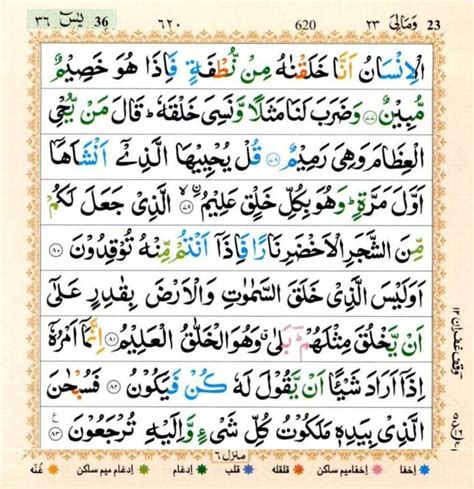 یٰسٓ 36 ۳۶ ۶۲۰ 620 وَمَالِیَ 23 ۲۳
الْاِنْسَانُ اَنَّا خَلَقْنٰهُ مِنْ نُّطْفَةٍ فَاِذَا هُوَ خَصِیْمٌ
مُّبِیْنٌ ﴿۷۷﴾ وَضَرَبَ لَنَا مَثَلًا وَّنَسِیَ خَلْقَهٗ ؕ قَالَ مَنْ یُّحْیِ
الْعِظَامَ وَهِیَ رَمِیْمٌ ﴿۷۸﴾ قُلْ یُحْیِیْهَا الَّذِیْۤ اَنْشَاَهَاۤ
اَوَّلَ مَرَّةٍ ؕ وَهُوَ بِكُلِّ خَلْقٍ عَلِیْمٌ ۙ﴿۷۹﴾ الَّذِیْ جَعَلَ لَكُمْ
مِّنَ الشَّجَرِ الْاَخْضَرِ نَارًا فَاِذَاۤ اَنْتُمْ مِّنْهُ تُوْقِدُوْنَ ﴿۸۰﴾
اَوَلَیْسَ الَّذِیْ خَلَقَ السَّمٰوٰتِ وَالْاَرْضَ بِقٰدِرٍ عَلٰۤی
اَنْ یَّخْلُقَ مِثْلَهُمْ ؕ بَلٰی ۗ وَهُوَ الْخَلّٰقُ الْعَلِیْمُ ﴿۸۱﴾ اِنَّمَاۤ اَمْرُهٗۤ
اِذَاۤ اَرَادَ شَیْـًٔا اَنْ یَّقُوْلَ لَهٗ كُنْ فَیَكُوْنُ ﴿۸۲﴾ فَسُبْحٰنَ
الَّذِیْ بِیَدِهٖ مَلَكُوْتُ كُلِّ شَیْءٍ وَّاِلَیْهِ تُرْجَعُوْنَ ﴿۸۳﴾
وقف غفران ۱۲
منزل ۶
اِخفا اِخفامیم ساکن قلقله قلب اِدغام اِدغام میم ساکن غُنّه